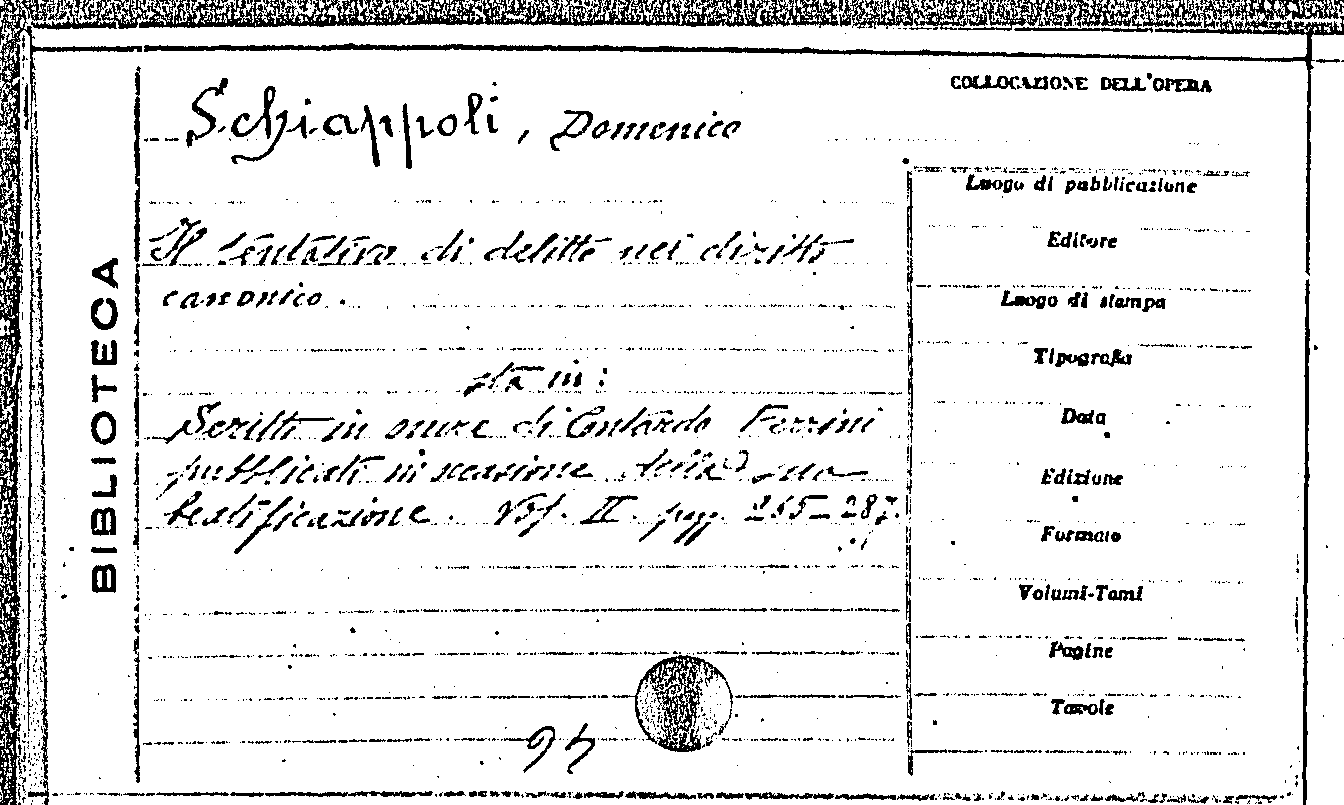 BIBLIOTECA
Schiappoli, Domenico
Il tentativo di delitto nel diritto
canonico.
sta in:
Scritti in onore di Contardo Ferrini
pubblicati in occasione della sua
beatificazione. Vol. II. pagg. 265-287.
COLLOCAZIONE DELL'OPERA
Luogo di pubblicazione
Editore
Luogo di stampa
Tipografia
Data
Edizione
Formato
Volumi-Tomi
Pagine
Tavole